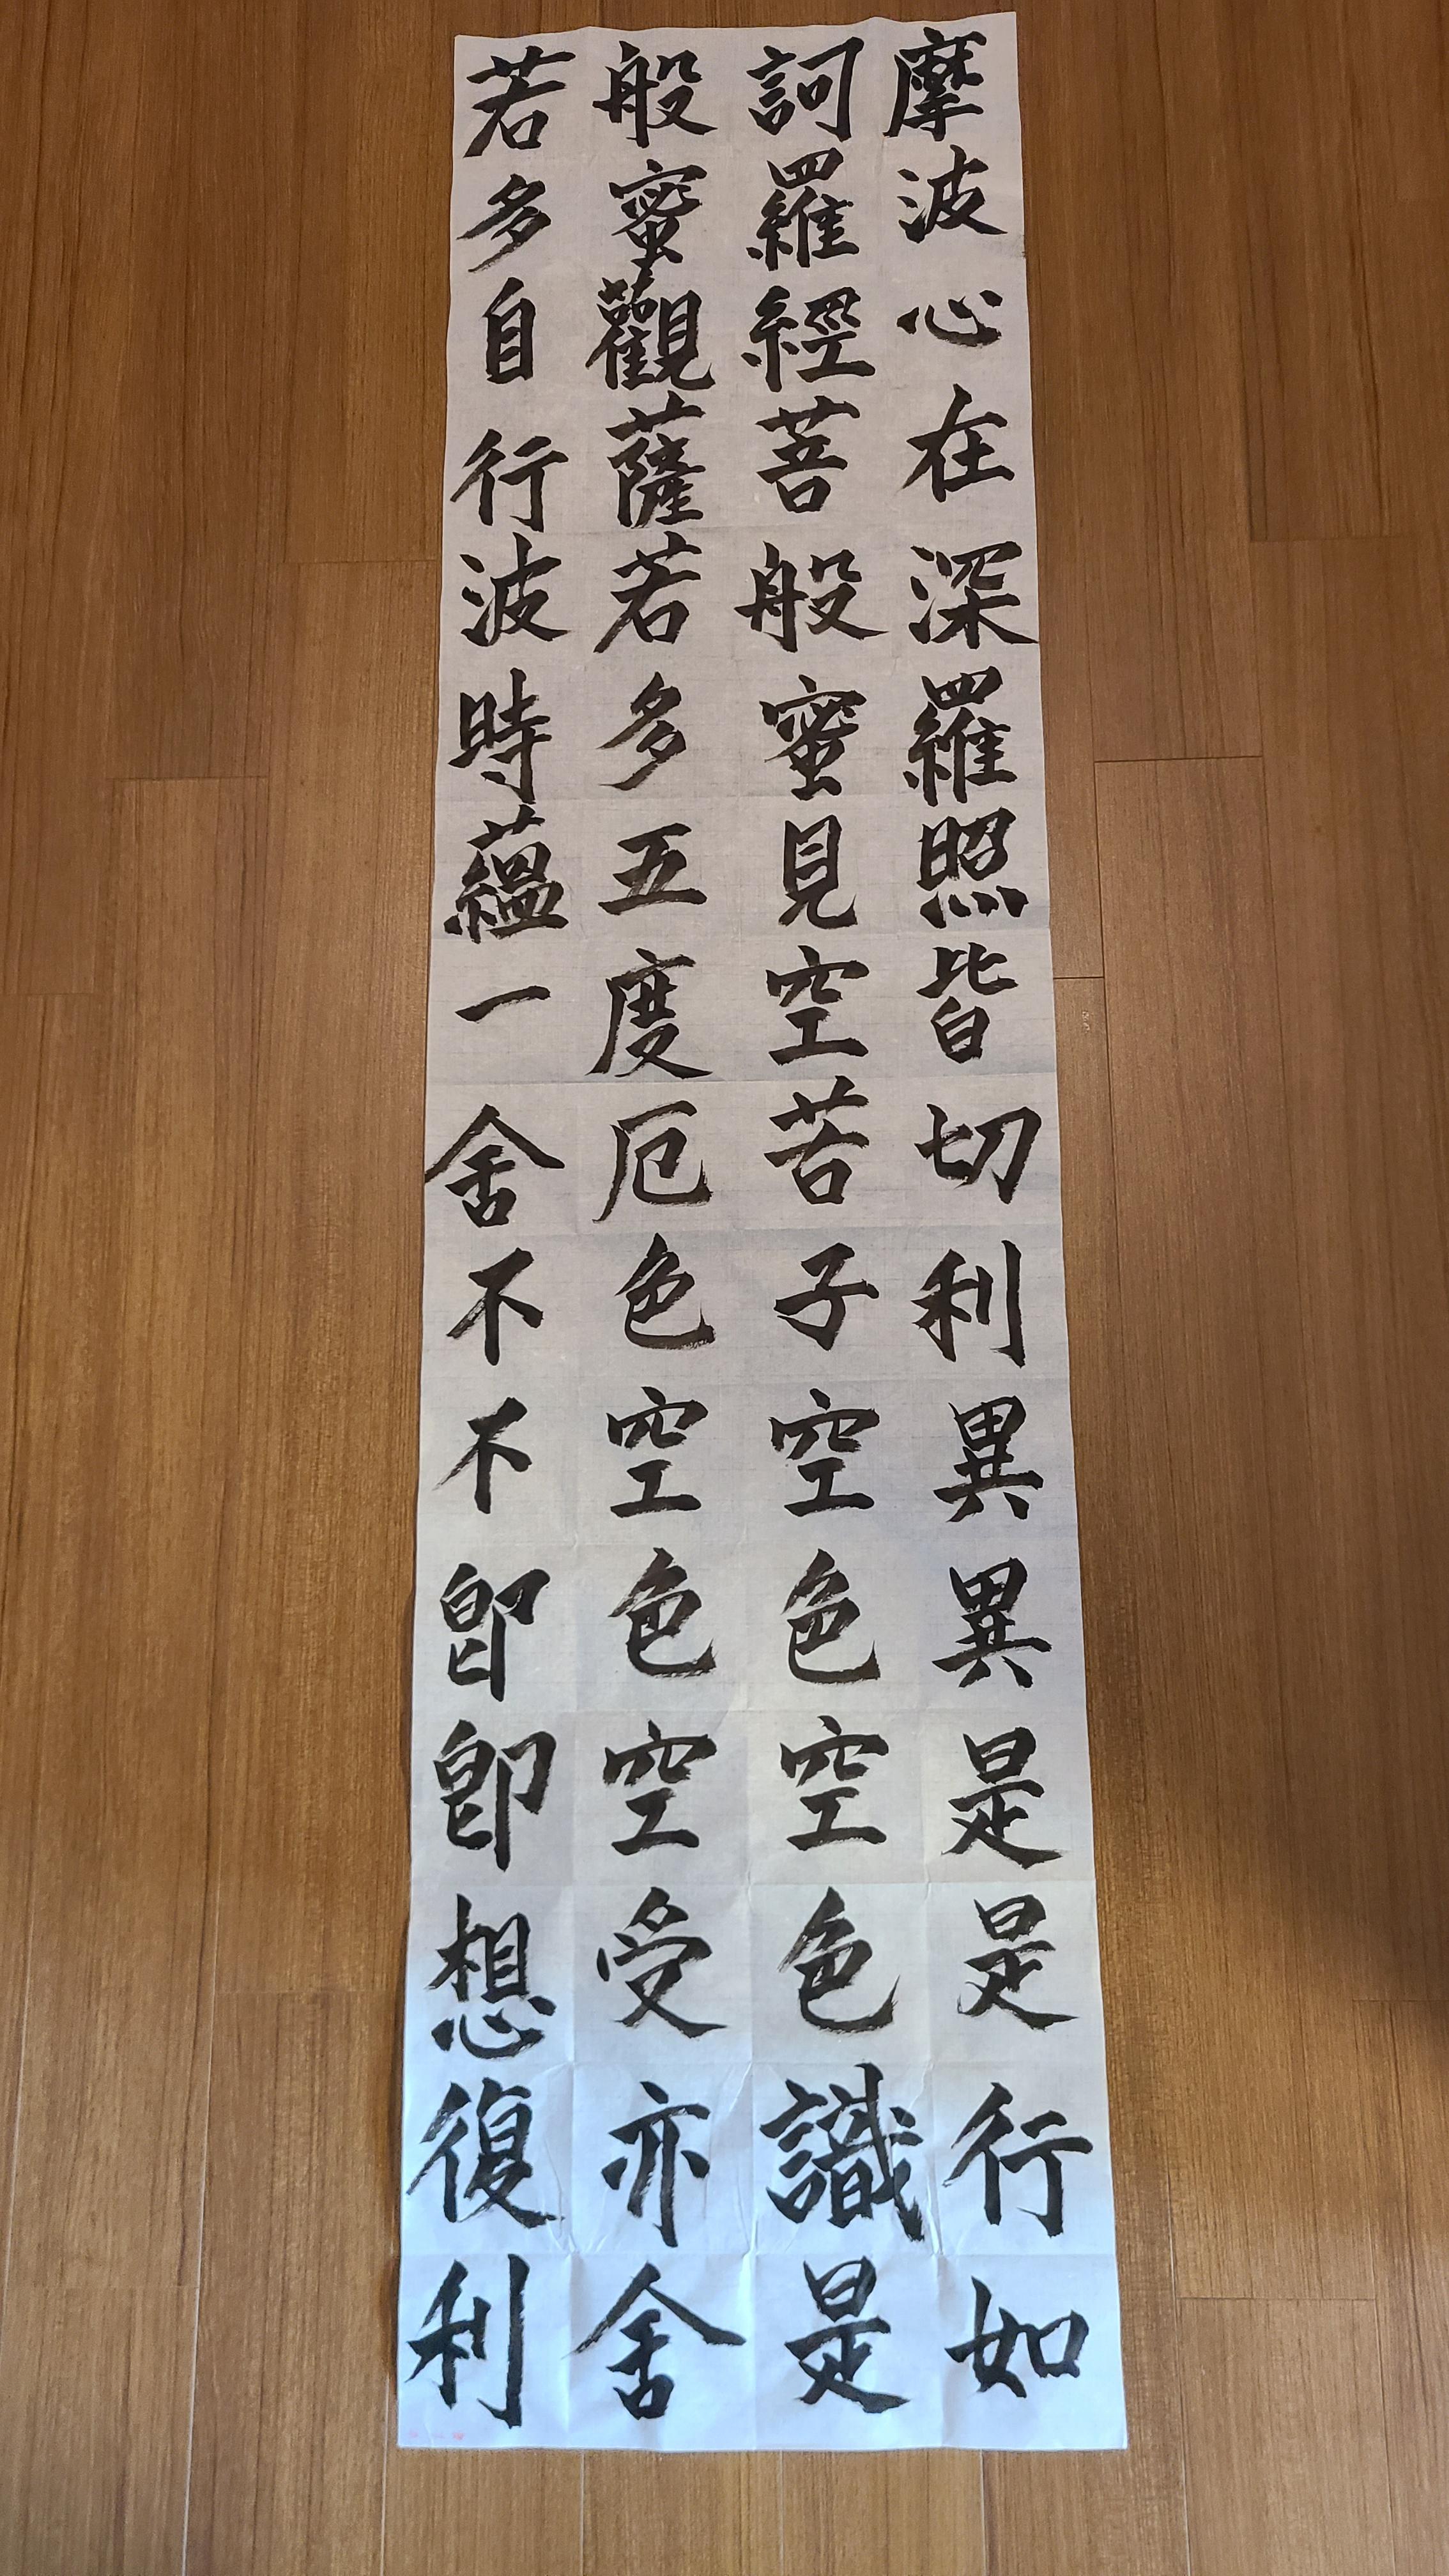 摩訶般若
波羅蜜多
心經觀自
在菩薩行
深般若波
羅蜜多時
照見五蘊
皆空度一
切苦厄舍
利子色不
異空空不
異色色卽
是空空卽
是色受想
行識亦復
如是舍利